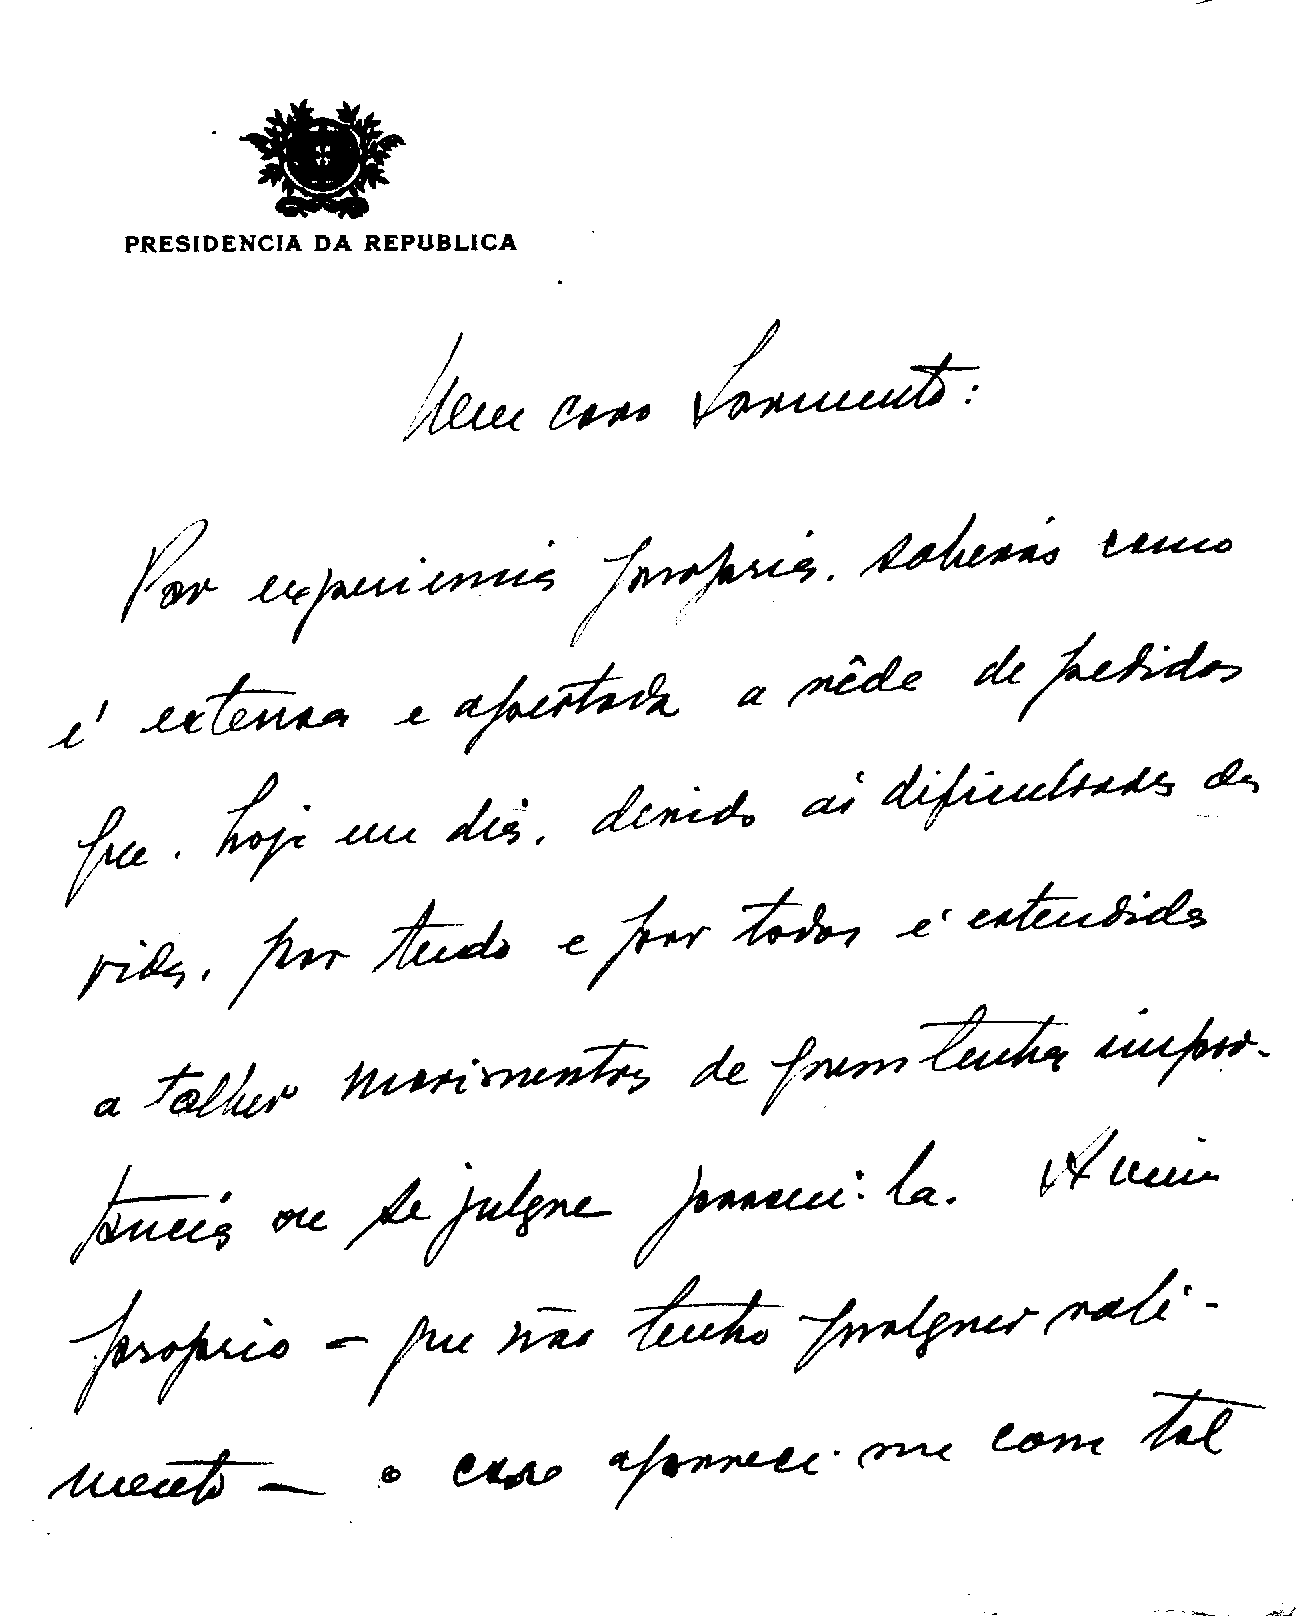 PRESIDENCIA DA REPUBLICA
Meu caro Sarmento:
Por experiencia propria, saberás como
é extensa e apertada a rêde de pedidos
que, hoje em dia, devido ás dificuldades da
vida, por tudo e por todos é estendida
a tolher movimentos de quem tenha impor-
tancia ou se julgue possui-la. A mim
proprio — que não tenho qualquer vali-
mento — o caso aparece-me com tal